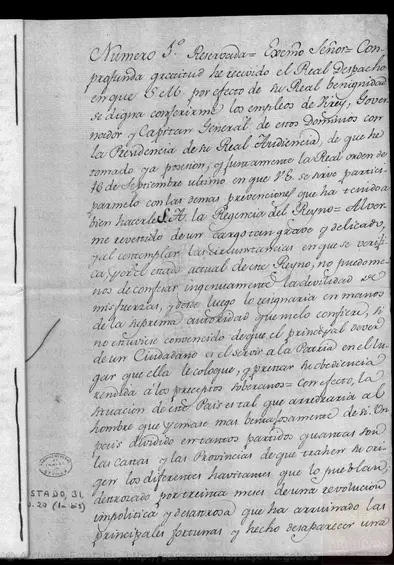 Numero 1º Reservada = Exmo Señor = Con
profunda gratitud he recivido el Real Despacho
en que S. M. por efecto de su Real benignidad
se digna conferirme los empleos de Virey, Gover
nador y Capitan General de estos Dominios con
la Presidencia de su Real Audiencia, de que he
tomado ya posesion, y juntamente la Real orden de
16 de Septiembre ultimo en que V. E. se sirve partici-
parmelo con las demas prevenciones que ha tenido a
bien hacerle S. A. la Regencia del Reyno = Al ver
me revestido de un cargo tan grave y delicado,
y al contemplar las circunstancias en que se verifi
ca, y por el estado actual de este Reyno, no puedo me
nos de confesar ingenuamente la devilidad de
mis fuerzas, y desde luego lo resignaria en manos
de la suprema autoridad que me lo confiere, si
no estuviese convencido de que el principal dever
de un Ciudadano es el servir a la Patria en el lu
gar que ella le coloque, y prestar su obediencia
rendida a los preceptos soberanos = Con efecto, la
situacion de este Pais es tal que arredraria al
hombre que pensase mas ventajosamente de si. Un
pais dividido en tantos partidos quantas son
las castas y las Provincias de que trahen su ori
gen los diferentes havitantes que lo pueblan;
destrozado por treinta meses de una revolucion
impolitica y desastrosa que ha arruinado las
principales fortunas y hecho desaparecer una
STADO, 31,